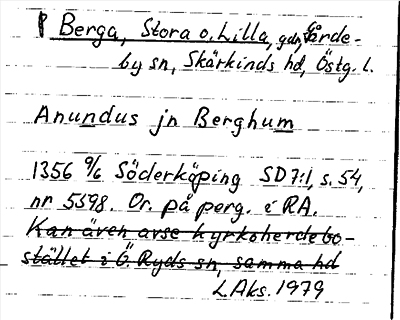 P Berga, Stora o. Lilla, gdr, Gårde-
by sn, Skärkinds hd, Östg. l.
Anundus jn Berghum
1356 9/6 Söderköping SD 7:1, s. 54,
nr 5598. Or. på perg. i RA.
Kan även avse kyrkoherdebo-
stället i Ö. Ryds sn, samma hd
LAks. 1979